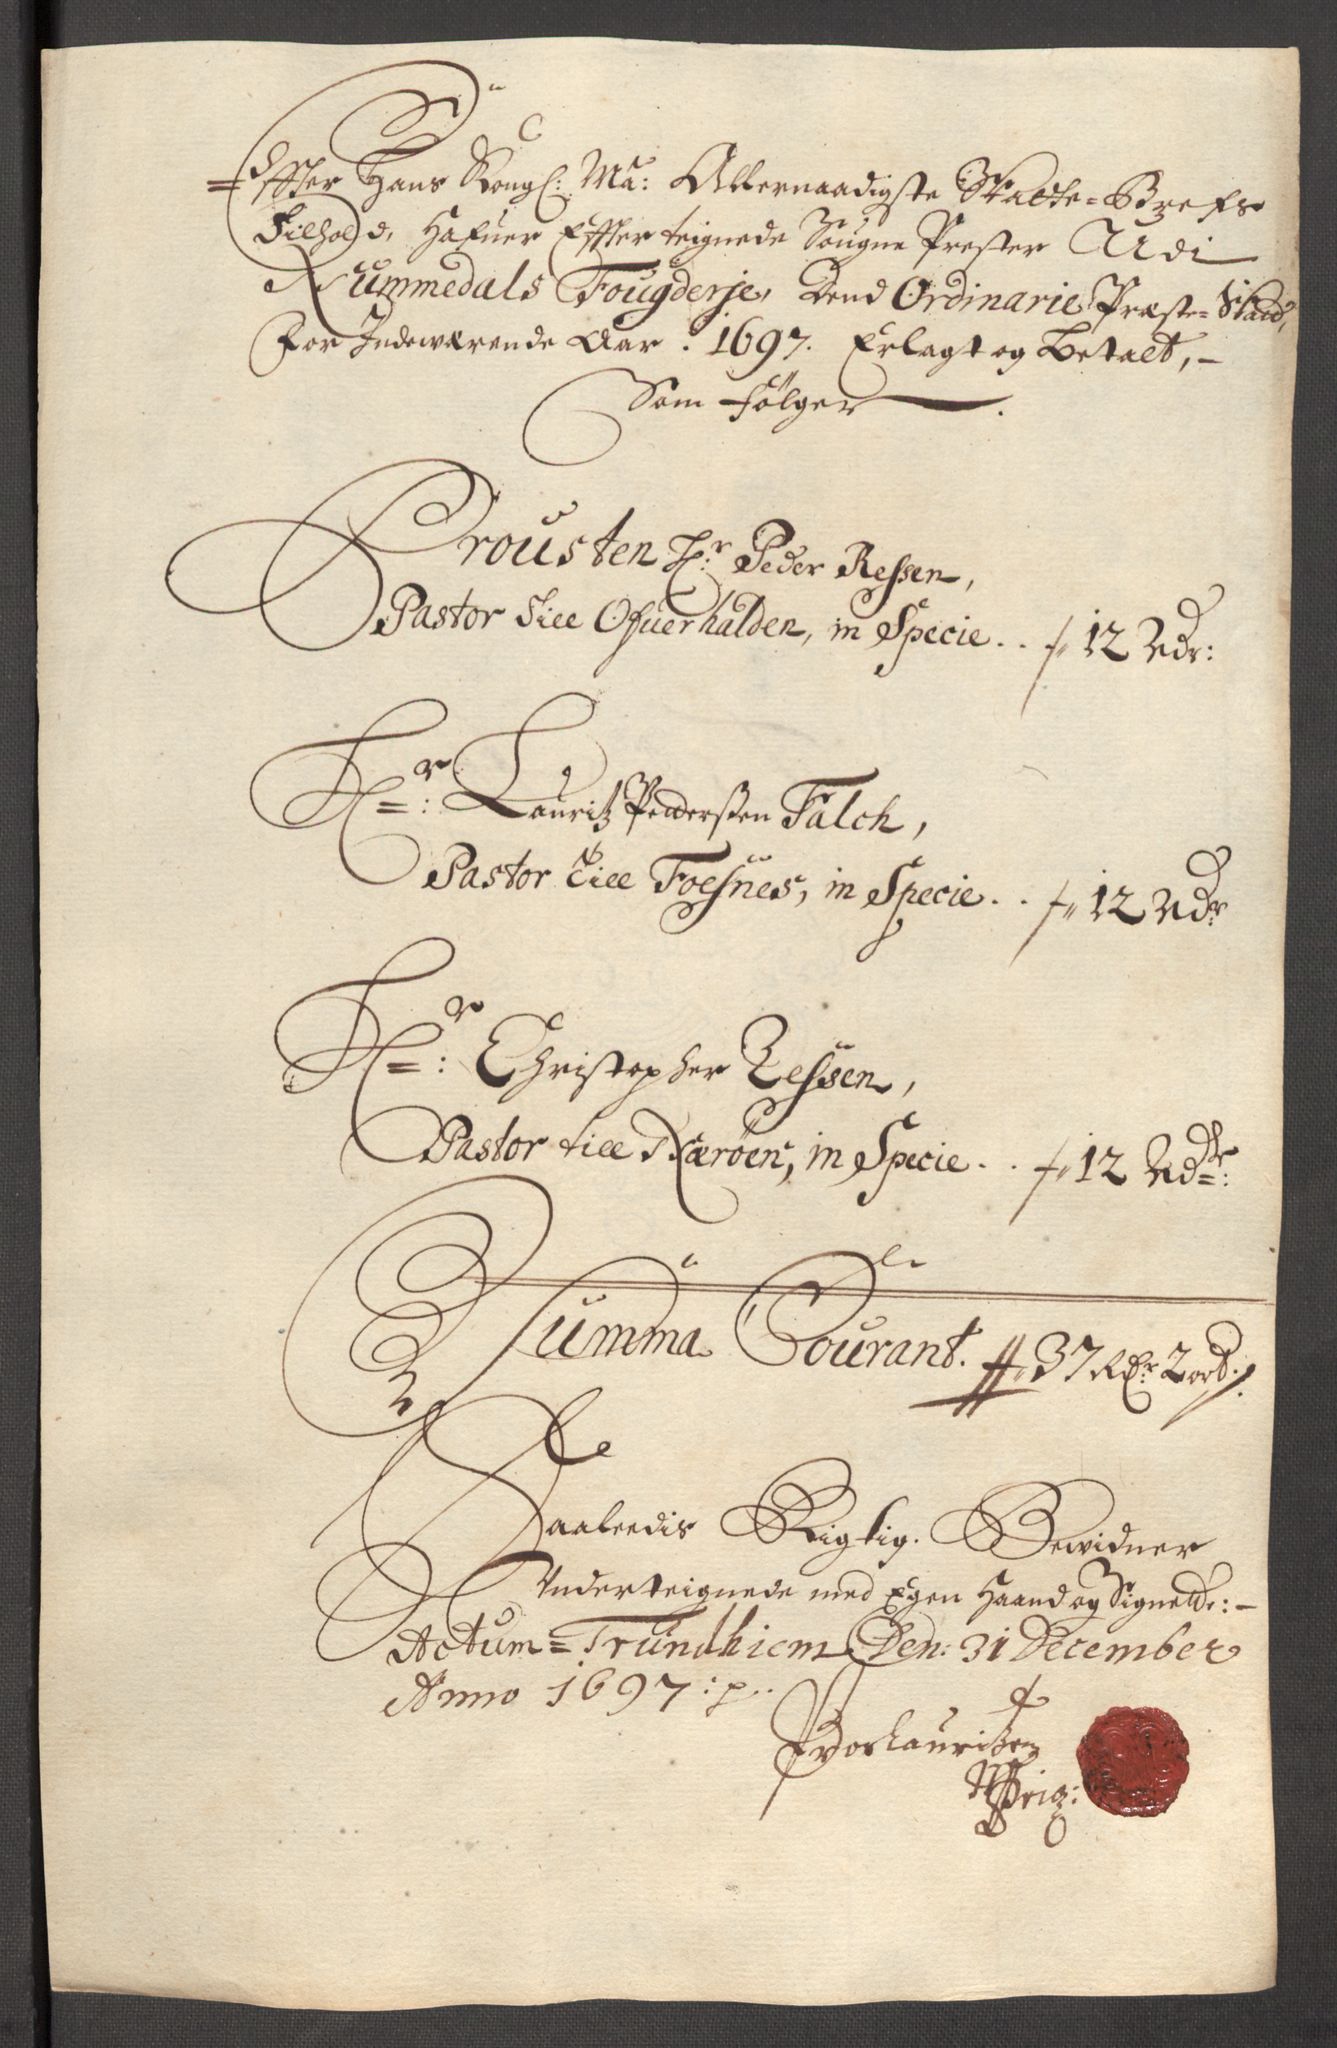 Effter Hans Kongl: Ma: Allernaadigste Skatte-Brefs
Tilhold, Hafuer Effter teignede Sougne Prester Udi
Nummedals Fougderje, Dend Ordinarie Præste-Skat,
For Indewærende Aar . 1697. Erlagt og Betalt, -
Som følger
Prousten Hr: Peder Ressen,
Pastor till Ofuerhalden, in Specie . . 12 Rdr:
Hr: Lauritz Pedderssen Falch,
Pastor till Foesnes, in Specie . . 12 Rdr
Hr: Christopher Ressen,
Pastor till Nærøen, in Specie . . 12 Rdlr:
Summa Courant. 37 Rdr 2 ort.
Saaleedis Rigtig. Bewidner
Vnderteignede med Egen Haand og Signette: -
Actum = Trundhiem Den: 31 December
Anno 1697 : p..
Lauritzen